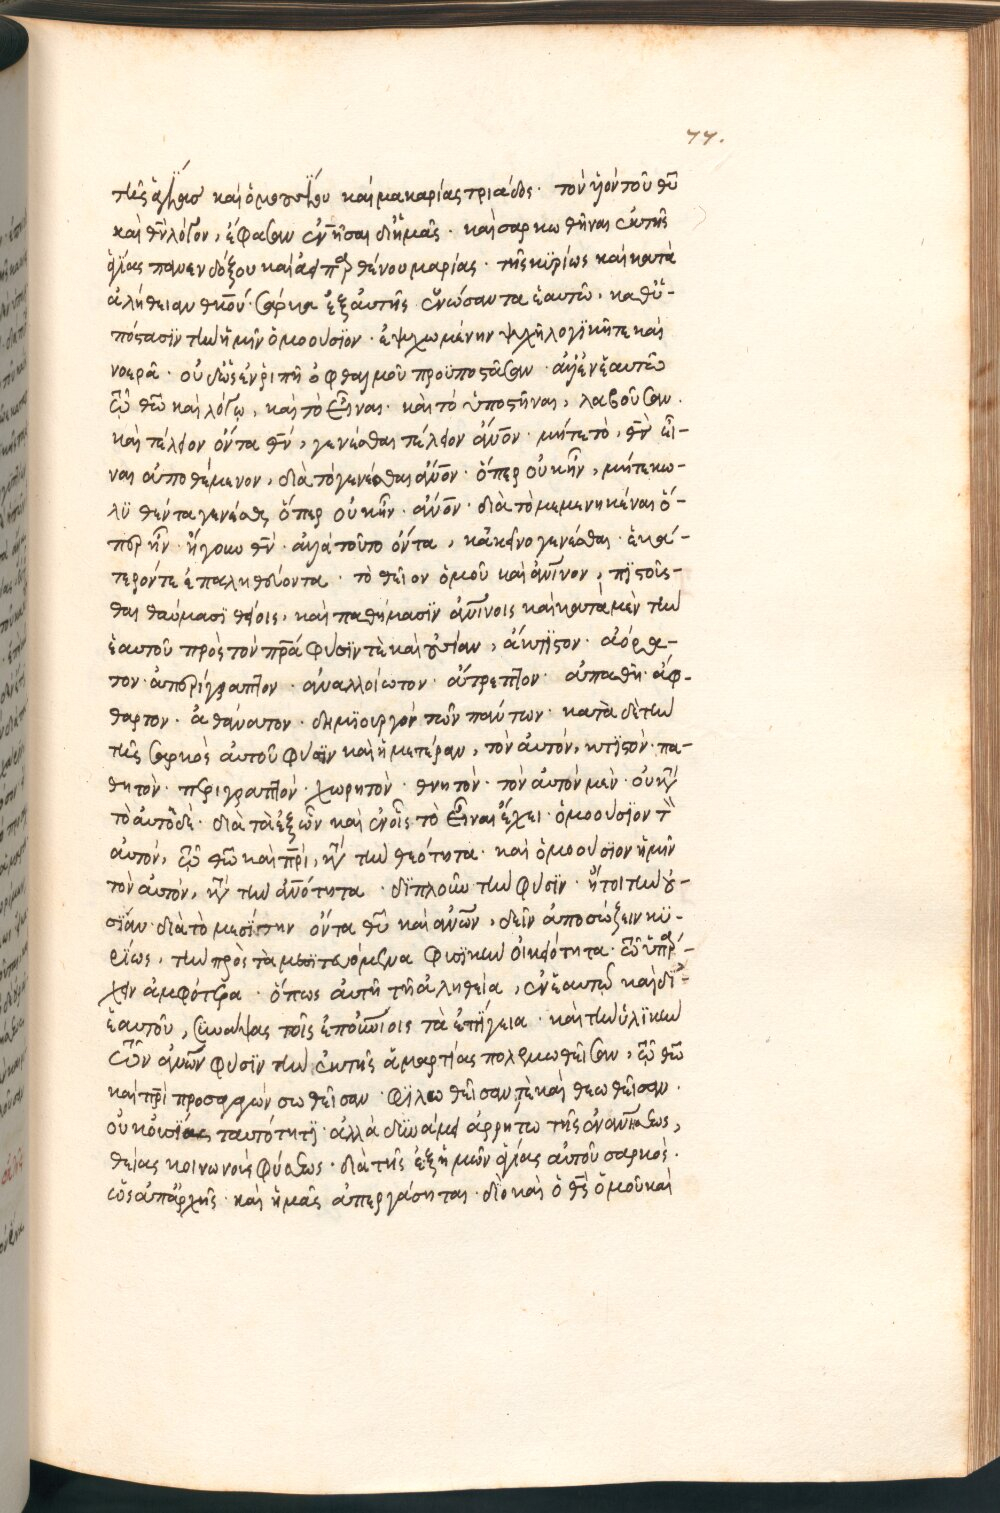 77.
τῆς ἁγίας καὶ ὁμοουσίου καὶ μακαρίας τριάδος· τὸν υἱὸν τοῦ θῦ
καὶ θν λόγον, ἔφασαν ἐνῆσαι δι' ἡμᾶς· καὶ σαρκωθῆναι ἐκ τῆς
ἁγίας πανενδόξου καὶ ἀειπαρθένου μαρίας· τῆς κυρίως καὶ κατὰ
ἀλήθειαν θκοῦ· σάρκα ἐξ αὐτῆς ἑνώσαντα ἑαυτῶ, καθ' ὑ-
πόστασϊν τὴν ἡμῖν ὁμοούσϊον· ἐψυχωμένην ψυχῆ λογϊκῆ τε καὶ
νοερᾶ· οὐδ' ὡς ἐν ῥιπῆ ὀφθαλμοῦ προϋποστᾶσαν· ἀλλ' ἐν ἑαυτῶ
τῶ θῶ καὶ λόγω, καὶ τὸ εἶναι· καὶ τὸ ὑποστῆναι, λαβοῦσαν·
καὶ τέλειον ὄντα θν, γενέσθαι τέλειον ἄνον· μήτε τὸ, θν εἶ-
ναι ἀποθέμενον, διὰ τὸ γενέσθαι ἄνον· ὅπερ οὐκ ἦν, μήτε κω-
λϋθέντα γενέσθαι ὅπερ οὐκ ἦν· ἄνον· διὰ τὸ μεμενηκέναι ὅ-
περ ἦν· ἤγουν θν· ἀλλὰ τοῦτο ὄντα, κἀκεῖνο γενέσθαι· ἑκά-
τερόν τε ἐπαληθεύοντα· τὸ θεῖον ὁμοῦ καὶ ἀνϊνον, πϊστοῦς-
θαι θαύμασϊ θείοις, καὶ παθήμασϊν ἀνϊνοις καὶ κατὰ μὲν τὴν
ἑαυτοῦ πρὸς τὸν πρα φύσϊν τὲ καὶ οὐσίαν, ἄκτϊστον· ἀόρα-
τον· ἀπερίγραπτον· ἀναλλοίωτον· ἄτρεπτον· ἀπαθῆ· ἄφ-
θαρτον· ἀθάνατον· δημϊουργὸν τῶν πάντων· κατὰ δὲ τὴν
τῆς σαρκὸς αὐτοῦ φύσϊν καὶ ἡμετέραν, τὸν αὐτὸν, κτϊστὸν· πα-
θητὸν· περιγραπτὸν· χωρητὸν· θνητὸν· τὸν αὐτὸν μὲν· οὐ κατὰ
τὸ αὐτὸ δὲ· διὰ τὰ ἐξ ὧν καὶ ἐν οἷς τὸ εἶναι ἔχει· ὁμοούσϊον τὸν
αὐτὸν, τῶ θῶ καὶ πρι, κατὰ τὴν θεότητα· καὶ ὁμοούσϊον ἡμῖν
τὸν αὐτὸν, κατὰ τὴν ἀνότητα· δϊπλοῦν τὴν φύσϊν· ἤτοι τὴν οὐ-
σϊαν· διὰ τὸ μεσϊτην ὄντα θῦ καὶ ἀνων, δεῖν ἀποσώζειν κϋ-
ρϊως, τὴν πρὸς τὰ μεσϊτευόμενα φυσϊκὴν οἰκειότητα· τῶ ὑπάρ-
χειν ἀμφότερα· ὅπως αὐτῆ τῆ ἀληθεία, ἐν ἑαυτῶ καὶ δι'
ἑαυτοῦ, συνάψας τοῖς ἐπουνίοις τὰ ἐπίγεια· καὶ τὴν ὑλϊκὴν
τῶν ἀνων φύσϊν τὴν ἐκ τῆς ἁμαρτίας πολεμωθεῖσαν, τῶ θῶ
καὶ πρι προσαγαγὼν σωθεῖσαν· φϊλιωθεῖσαν τὲ καὶ θεωθεῖσαν·
οὐκ οὐσίας ταὐτότητϊ· ἀλλὰ δυνάμει ἀρρήτω τῆς ἐνανπήσεως,
θείας κοινωνοὺς φύσεως· διὰ τῆς ἐξ ἡμῶν ἁγίας αὐτοῦ σαρκὸς·
ὡς ἀπαρχῆς· καὶ ἡμᾶς ἀπεργάσηται· διὸ καὶ ὁ θς ὁμοῦ καὶ